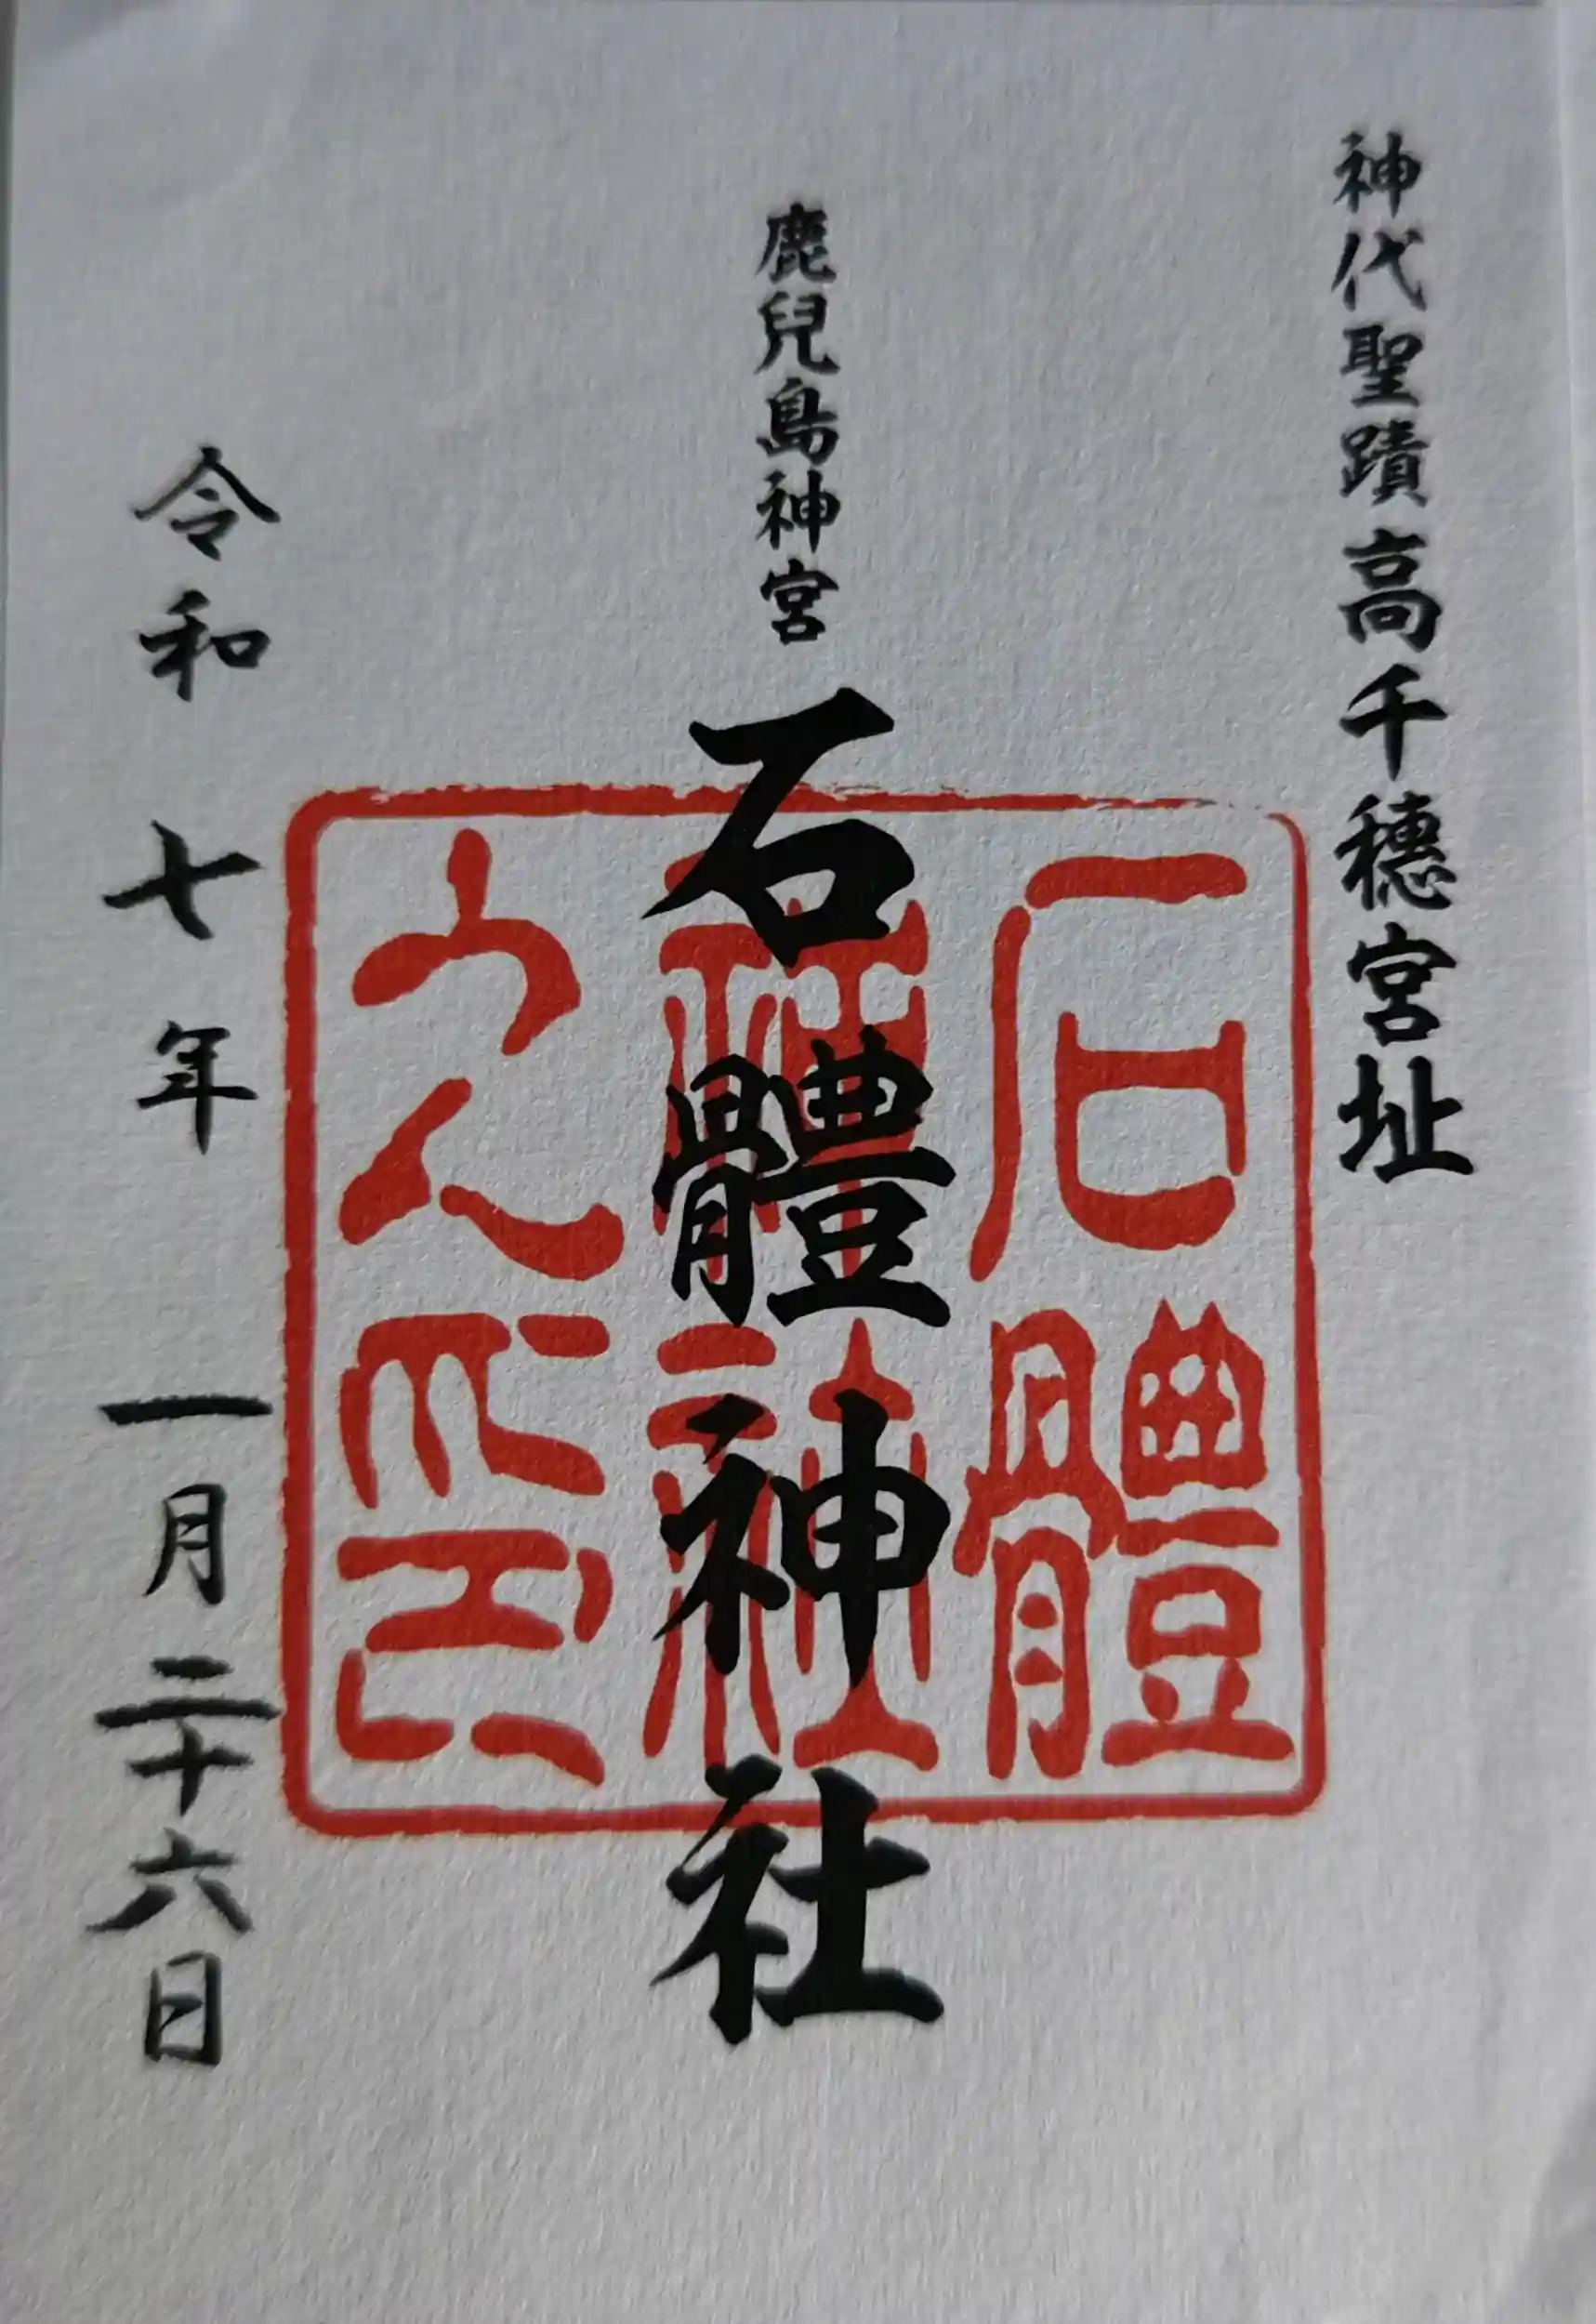 神代聖蹟高千穗宮址
鹿兒島神宮
石體神社
令和七年一月二十六日
石體
神社
之印